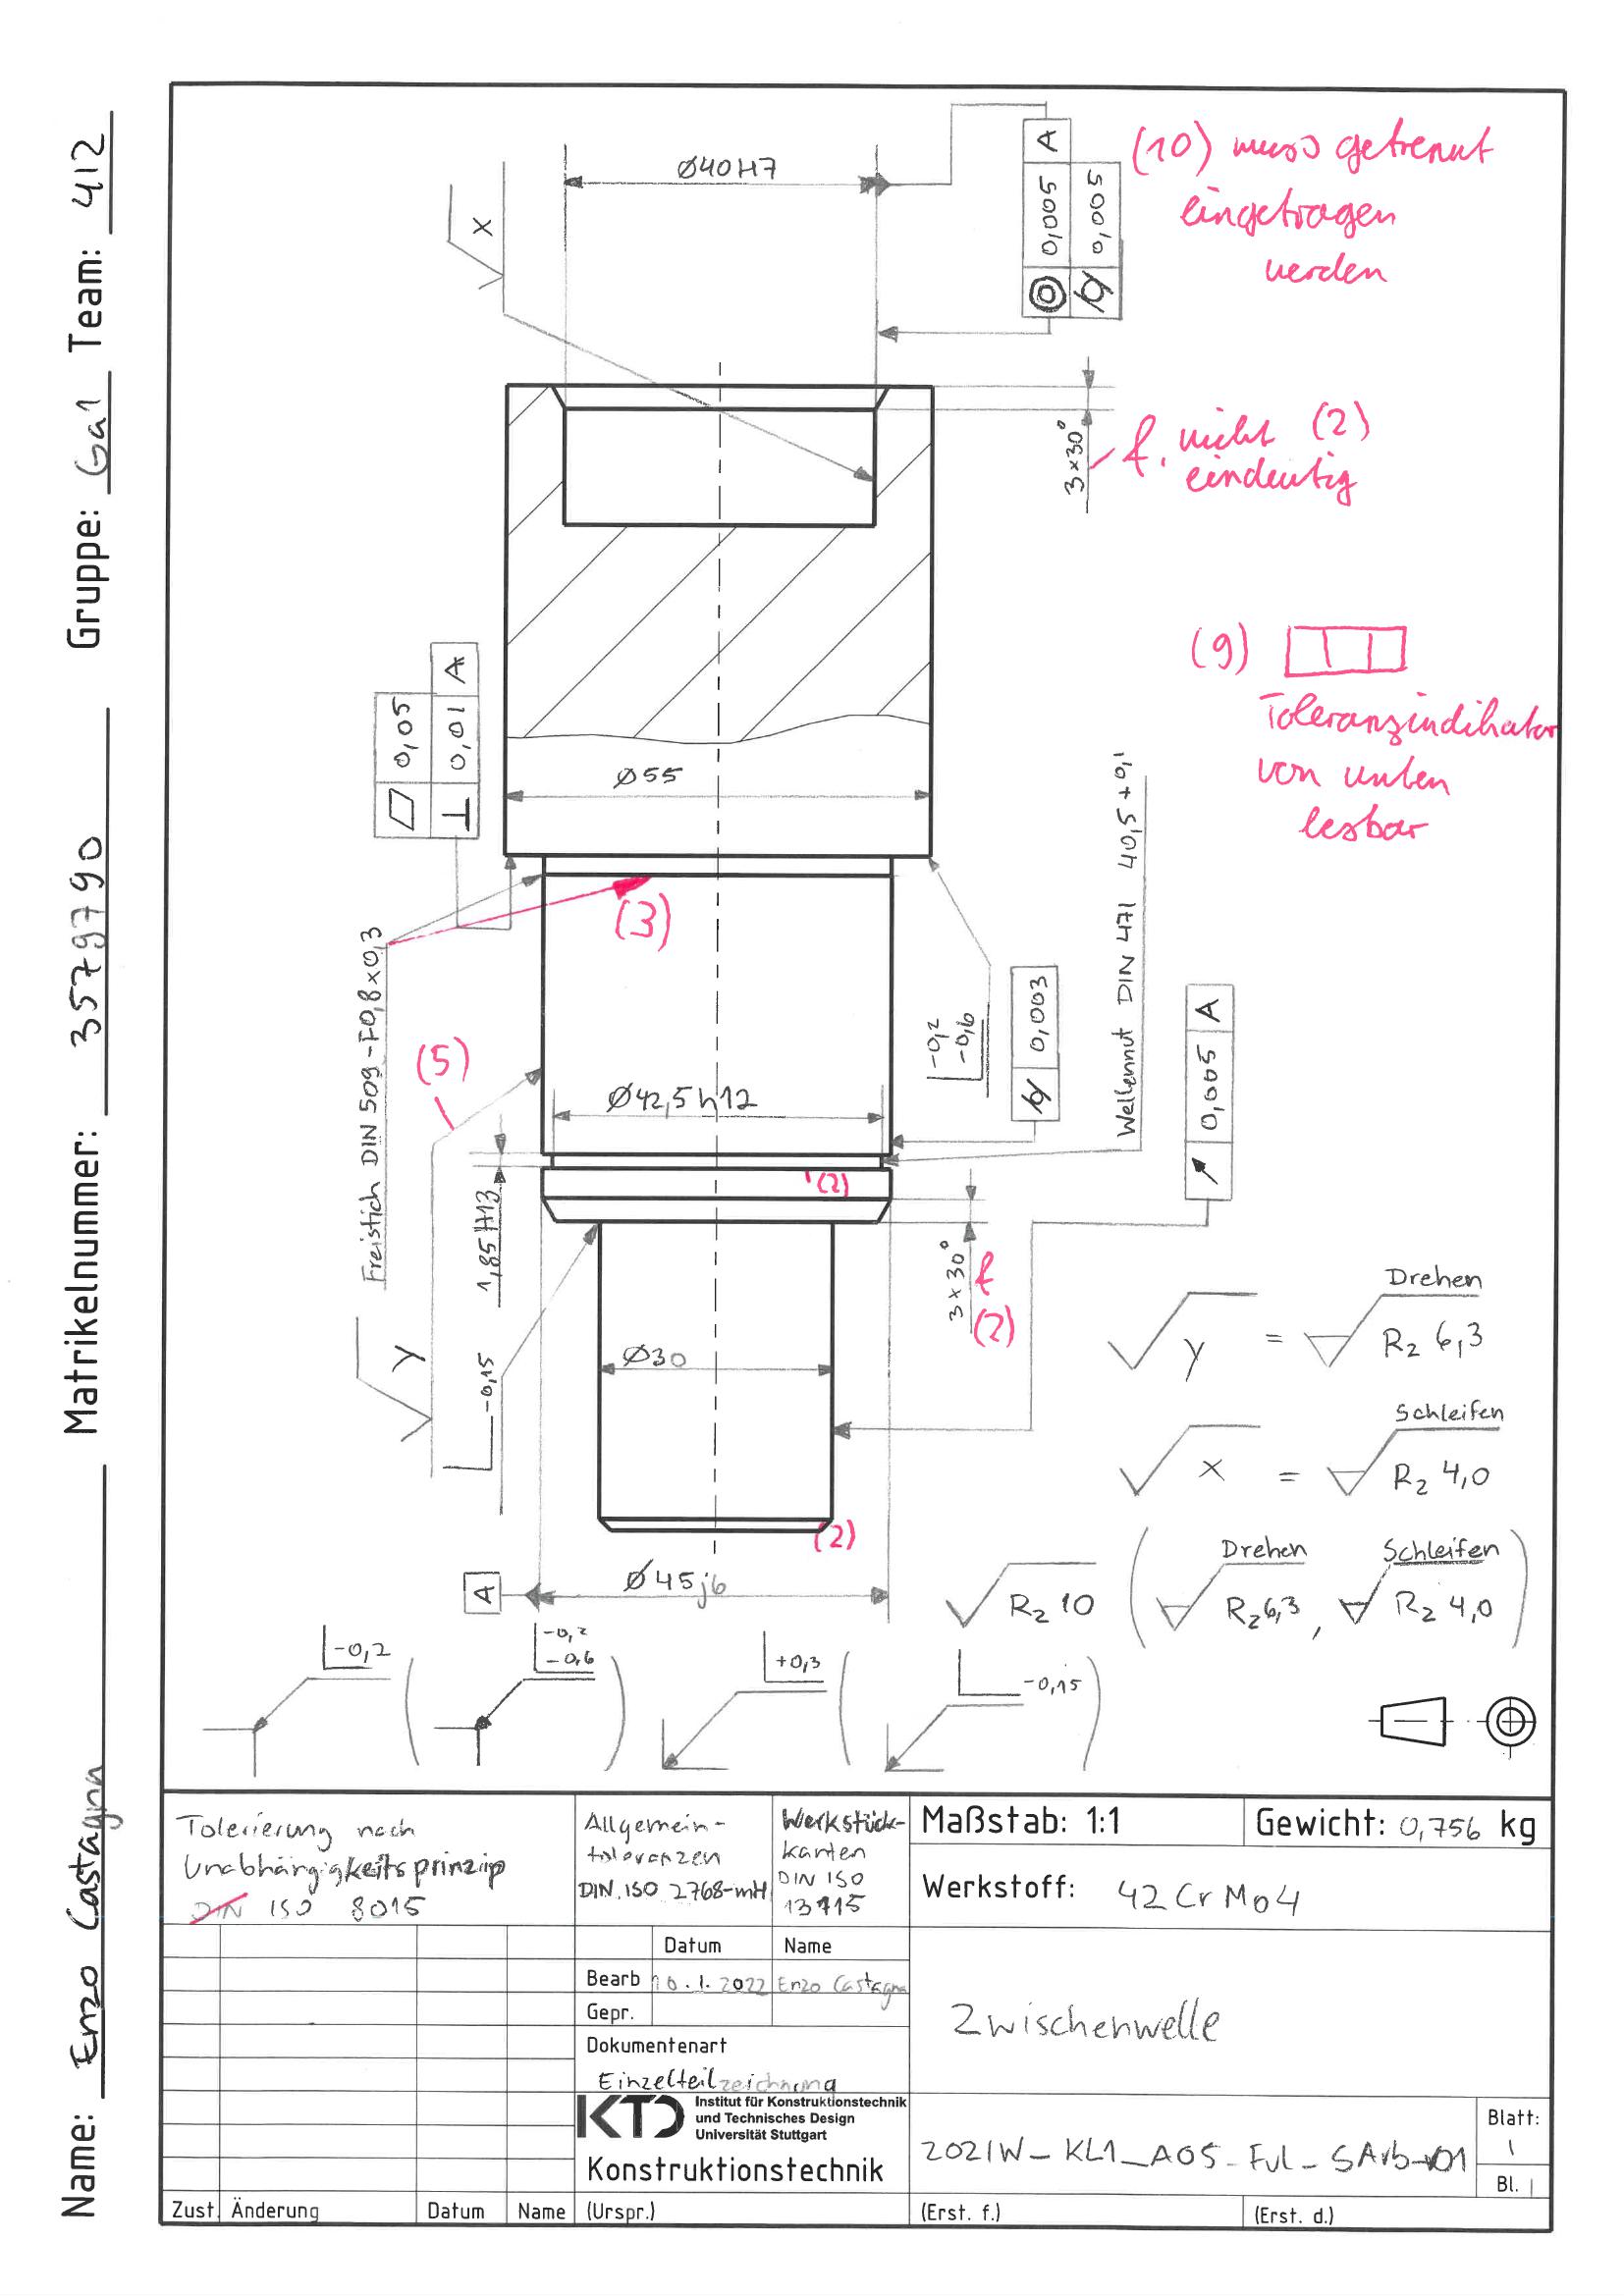 Name: Enzo Castagna
Matrikelnummer: 3579790
Gruppe: Ga1 Team: 412
Ø40H7
x
A
0,005
0,005
(10) muss getrennt
eingetragen
werden
3×30°
f. nicht (2)
eindeutig
0,05
0,01 A
(9)
Toleranzindikator
von unten
lesbar
Ø55
(3)
Freistich DIN 509-F0,8×0,3
Wellennut DIN 471 40,5 +0,1
-0,2
-0,6
0,003
0,005 A
(5)
Ø42,5 h12
1,85 H13
(2)
3×30°
f
(2)
y
-0,15
Ø30
(2)
A
Ø45j6
Drehen
y = Rz 6,3
Schleifen
x = Rz 4,0
Drehen Schleifen
Rz 10 ( Rz 6,3 , Rz 4,0 )
-0,2 ( -0,2
-0,6 ) +0,3 ( -0,15 )
Tolerierung nach
Unabhängigkeitsprinzip
DIN ISO 8015
Allgemein-
toleranzen
DIN ISO 2768-mH
Werkstück-
kanten
DIN ISO
13715
Maßstab: 1:1
Gewicht: 0,756 kg
Werkstoff: 42CrMo4
Datum Name
Bearb 10.1.2022 Enzo Castagna
Gepr.
Dokumentenart
Einzelteilzeichnung
Zwischenwelle
KTD
Institut für Konstruktionstechnik
und Technisches Design
Universität Stuttgart
Konstruktionstechnik
2021W_KL1_A05_Ful_SArb_01
Blatt:
1
Bl. 1
Zust. Änderung Datum Name (Urspr.) (Erst. f.) (Erst. d.)